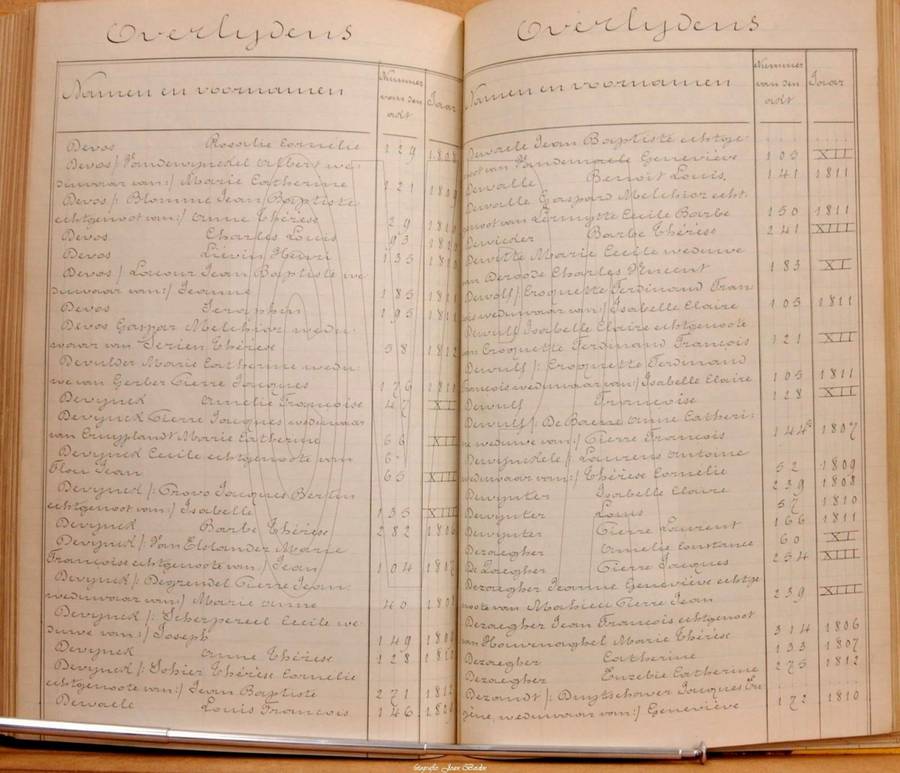 Overlydens
Namen en voornamen
Nummer van den acht
Jaar
Devos Rosalie Cornélie 129
Devos /: Vandewynckel Albert we-
duwaar van:/ Marie Catherine 121 1809
Devos /: Blomme Jean Baptiste
echtgenoot van:/ Anne Thérèse 29
Devos Charles Louis 93
Devos Liévin Henri 135
Devos / Jean Baptiste we-
duwaar van:/ Jeanne 185 1811
Devos Seraphin 195 1811
Devos Gaspar Melchior wedu-
waar van Thérèse 58 1812
Devulder Marie Catherine wedu-
we van Gerber Pierre Jacques 176
Devynck Amelie Françoise 47
Devynck Pierre Jacques weduwaar
van Marie Catherine 66
Devynck Cecile echtgenoote van
Jean 65 XIII
Devynck /: Provo Jacques Bertin
echtgenoot van:/ Isabelle 135 XIII
Devynck Barbe Thérèse 282 1806
Devynck /: Van Elslander Marie
Françoise echtgenoote van:/ Jean 104 1807
Devynck /: Degrendel Pierre Jean
weduwaar van:/ Marie Anne 40
Devynck /: Scherpereel Cecile we-
duwe van:/ Joseph 149
Devynck Anne Thérèse 128
Devynck /: Sohier Thérèse Cornelie
echtgenoote van:/ Jean Baptiste 271 1812
Dewaele Louis François 146
Overlydens
Namen en voornamen
Nummer van den acht
Jaar
Dewaele Jean Baptiste echtge-
noot van Vandemaele Geneviève 103 XII
Dewalle Benoit Louis 141 1811
Dewalle Gaspard Melchior echt-
genoot van Lermytte Cecile Barbe 150 1811
Dewieder Barbe Thérèse 241 XIII
Dewitte Marie Cecile weduwe
van Deroode Charles Vincent 183 XI
Dewolf / Croquette Ferdinand Fran-
çois weduwaar van:/ Isabelle Claire 105 1811
Dewulf Isabelle Claire echtgenoote
van Croquette Ferdinand François 121 XII
Dewulf /: Croquette Ferdinand
François weduwaar van:/ Isabelle Claire 105 1811
Dewulf Françoise 128 XII
Dewulf / De Baene Anne Catheri-
ne weduwe van:/ Pierre François 144 1807
Dewynckele / Laurens Antoine
weduwaar van:/ Thérèse Cornelie 52 1809
Dewynter Isabelle Claire 239 1808
Dewynter Louis 57 1810
Dewynter Pierre Laurent 166 1811
Dezaegher Amelie Constance 60 XI
De Zaegher Pierre Jacques 254 XIII
Dezaegher Jeanne Geneviève echtge-
noote van Mahieu Pierre Jean 239 XIII
Dezaegher Jean François echtgenoot
van Houvenaghel Marie Thérèse 314 1806
Dezaegher Catherine 133 1807
Dezaegher Euzebie Catherine 275 1812
Dezandt /: Duytschaver Jacques Eu-
gène, weduwaar van:/ Geneviève 172 1810
fotografie Jean Bedin